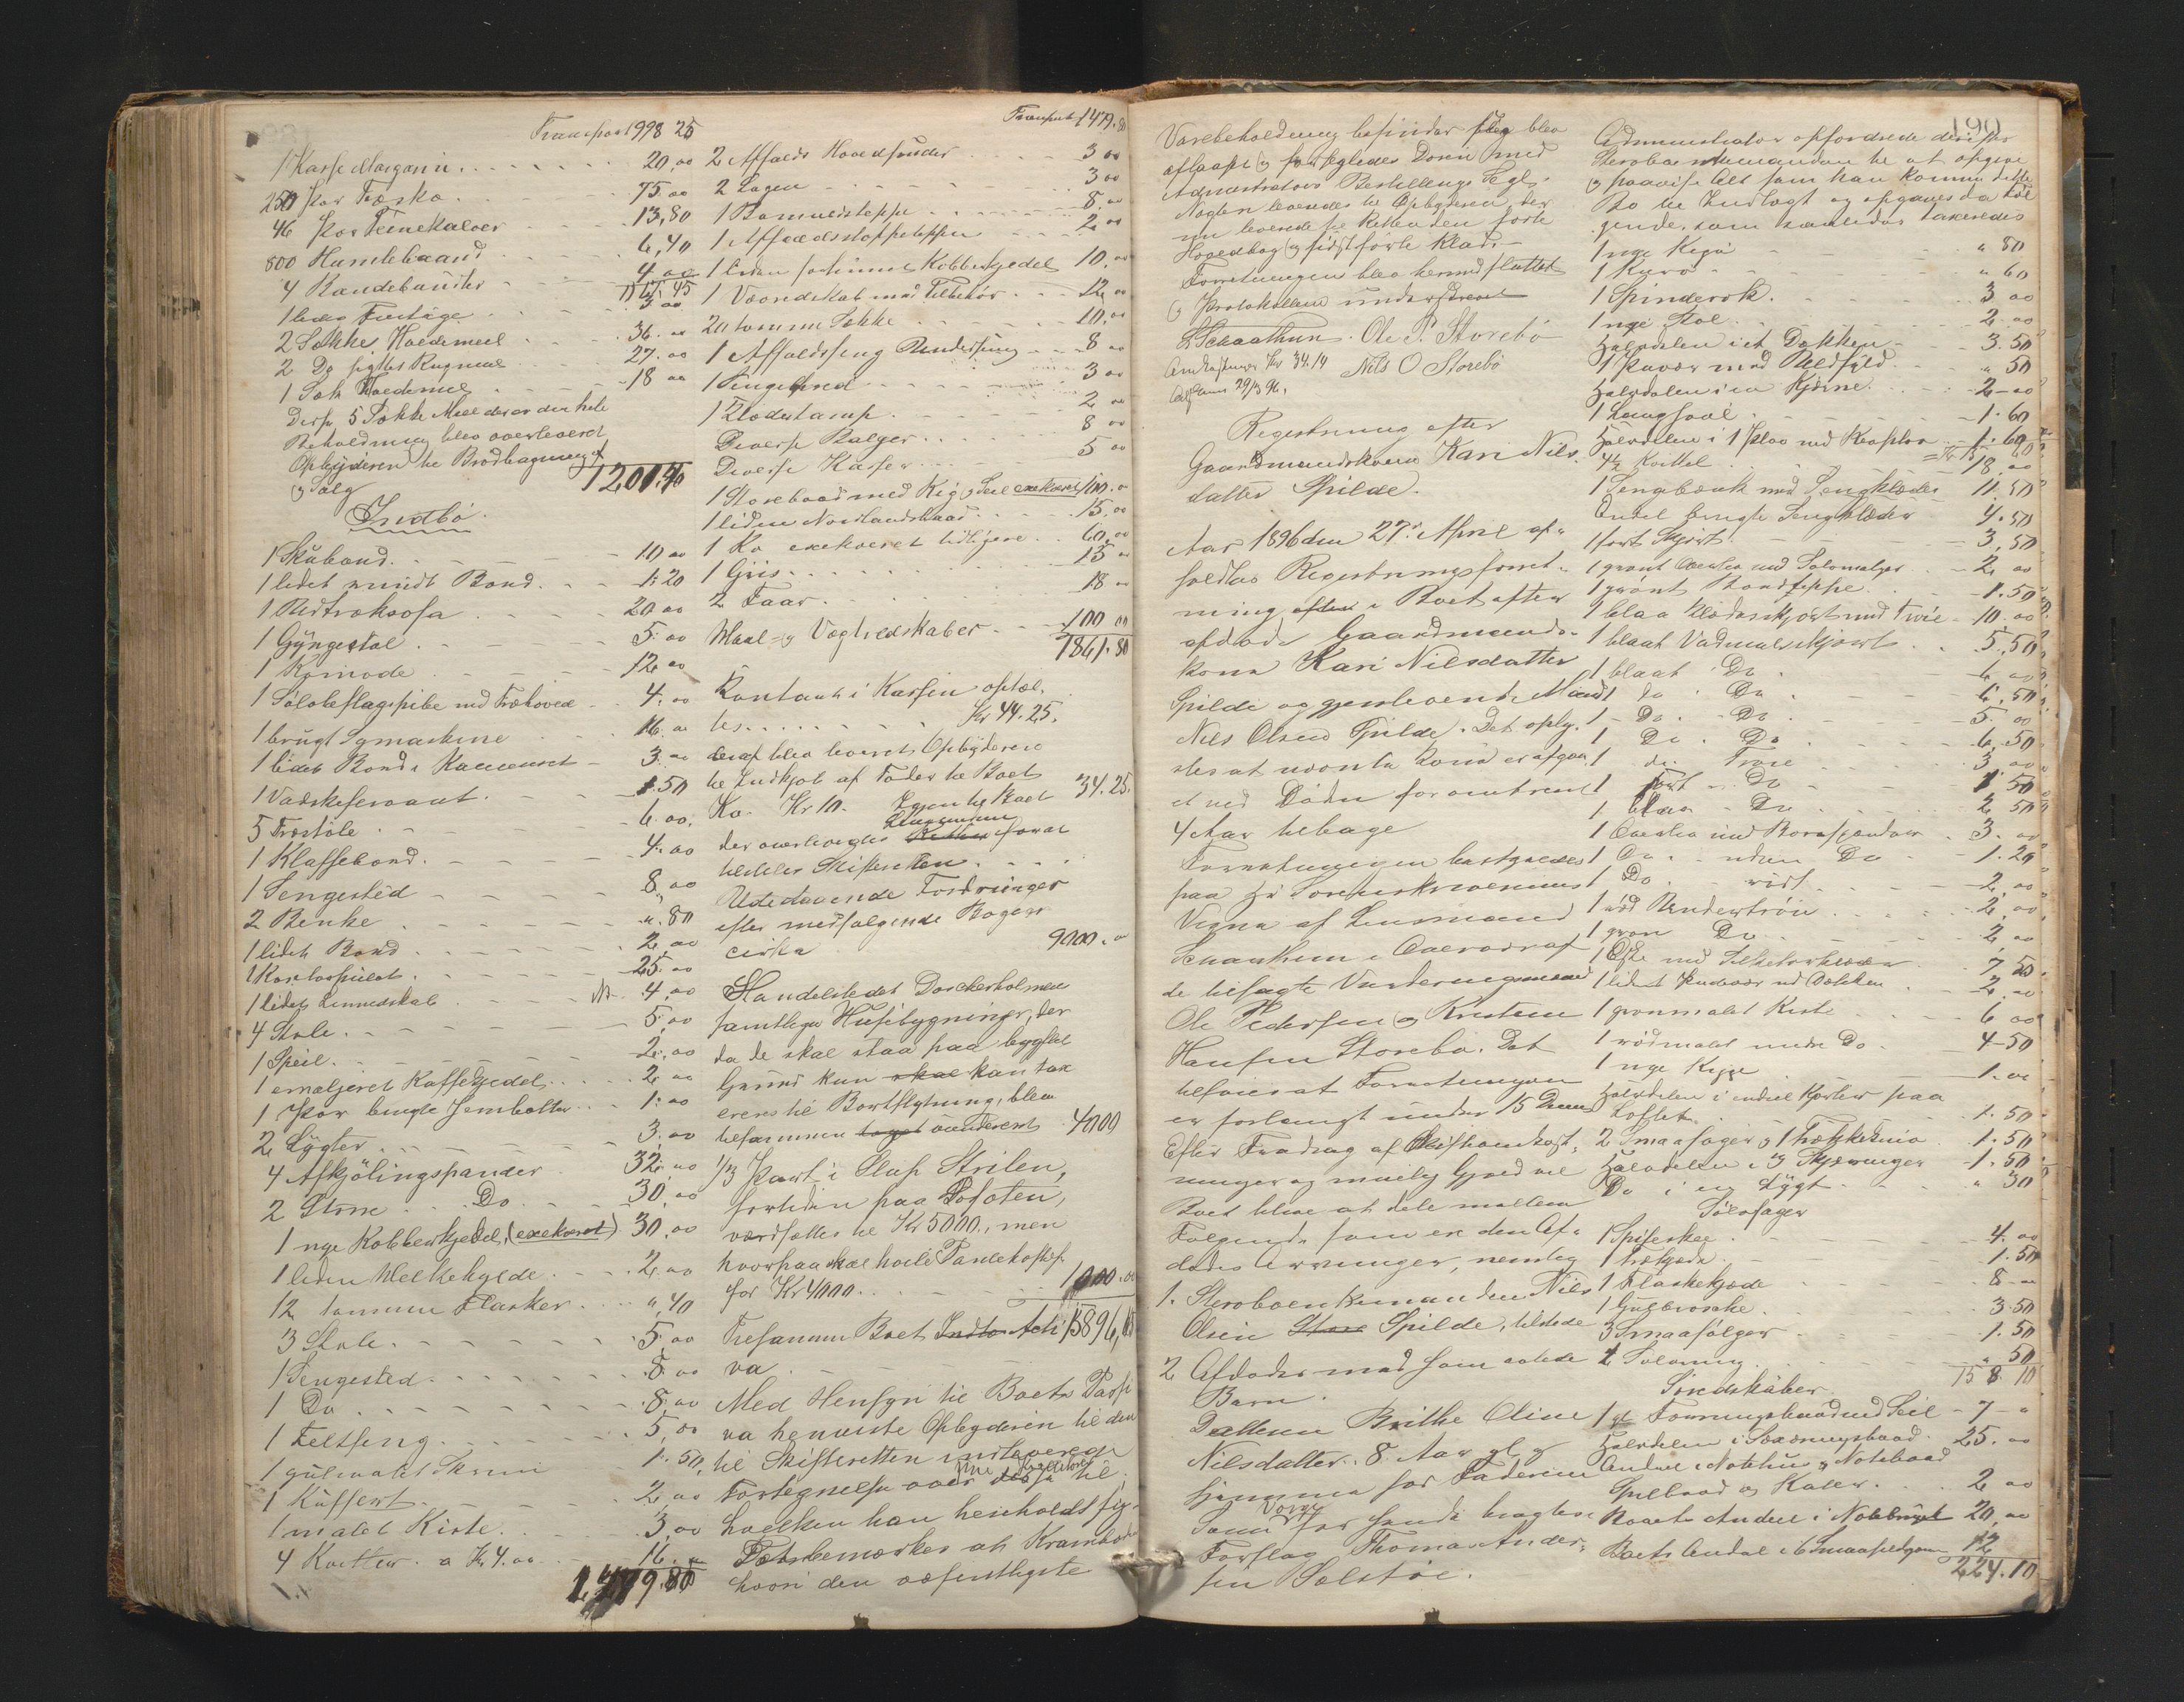 Transport 998 25
1 Kasse Margarin 20,00
250 Par Træsko 75 00
46 Par Tinekalver 13,80
800 Hamlebaand 6,40
4 Bandebunter 4 00
1117.45
1 liden 3 00
2 Sække Hvedemeel 36.00
2 Do sigtet Rugmeel 27.00
1 Sæk Hvedemel 18 00
Disse 5 Sække Meel der er den hele
Beholdning blev overleveret
Opbyderen til Brødbagning
og Salg
1201.40
Indbo
1 Skabond 10 00
1 lidet rundt Bord 1.20
1 Udtræksofa 20 00
1 Gyngestol 5.00
1 Komode 12 00
1 Sølvbeslagspibe med Træhoved 4.00
1 brugt Symaskine 16.00
1 lidet Bord i Kammeret 3.00
1 Vadskeservant 1.50
5 Træstole 6.00
1 Klaffebord 4.00
1 Sengested 8.00
2 Benke ".80
1 lidet Bord 2.00
1 Kontorpulet 25.00
1 lidet Linnedskab 4,00
4 Stole 5,00
1 Speil 2,00
1 emaljeret Kaffekjedel 2.00
1 Par brugte Jernbolter 1.00
2 Lygter 3.00
4 Afkjölingspander 32.00
2 Störe Do 30,00
1 nye Kobberkjedel (exekveret) 30,00
1 liden Melkehylde 2.00
12 tomme Flasker ",40
3 Stole 5,00
1 Sengested 8.00
1 Do 8,00
1 Feltseng 5,00
1 gulmalet Skrin 1.50
1 Kuffert 2,00
1 malet Kiste 3,00
4 Kvitler a Kr 4.00 16.00
1479.80
Transport 1479.80
2 Affælds Hovedpuder 3 00
2 Lagen 3 00
1 Bomuldsteppe 8.00
1 Affældsstoppeteppe 2 00
1 liden fortinnet Kobberkjedel 10.00
1 Voondskab med Tilbehör 12 00
20 tomme Sække 10.00
1 Affældsseng Underseng 8 00
1 Sengebred 3 00
1 Klædestamp 2 00
Diverse Balger 8 00
Diverse Kasser 5 00
1 Storebaad med Rig og Seil exekveret 100.00
1 liden Nordlandsbaad 15.00
1 Ko exekveret tidligere 60.00
1 Gris 15 00
2 Faar 18 00
Maal- og Vægtredskaber 100 00
1861.80
Kontant i Kassen optæl.
les Kr 44.25.
deraf blev leveret Opbyderen
til Indkjøb af Foder til Boets
Ko. Kr 10. Igjen til Boet 34.25.
der overleveredes Lensmanden forat
tilstilles Skifteretten
Udestaaende Fordringer
efter medfølgende Bøger
cirka 9000.00
Handelstedet Dorckerholmen
samtlige Husebygninger, der
da de skal staa paa bygslet
Grund kun skal kan tax
eres til Bortflytning, blev
tilsammen taget vurderet 4000
1/3 Part i Slup Strilen,
fortiden paa Lofoten,
værdsættes til Kr 5000., men
hvorpaa skal hvile Pantehæftelse
for Kr 4000. 1000.00
Tilsammen Boets Indbo Acti 15896,05
va
Med Hensyn til Boets Passi
va henviste Opbyderen til den
til Skifteretten indleverede
Fortegnelse over sine Kreditorer til
hvilken han henholdt sig.
Det bemærkes at Kramboden
hvori den væsentligste
Varebeholdning befinder sig blev
aflaast og forsegledes Døren med
Administrators Bestillings Segl.
Nøglen leveredes til Opbyderen, der
nu leverede til Retten den førte
Hovedbog og sidst førte Klad-
Forretningen blev hermed sluttet
og Protokollen underskrevet
L Schaathun. Ole P. Storebö
Omkostninger Kr 34.14 Nils O Storebö
29/3 96.
Registrering efter
Gaardmandskonen Kari Nils.
datter Spilde.
Aar 1896 den 27de April af.
holdtes Registreringsforret-
ning efter i Boet efter
afdøde Gaardmands-
kone Kari Nilsdatter
Spilde og gjenlevende Mand
Nils Olsen Spilde. Det oply.
stes at nævnte Kone er afgaa
et ved Døden for omtrent
4 Aar tilbage
Forretningen bestyredes
paa Hr Sorenskriverens
Vegne af Lensmand
Schaathun i Overværaf
de tilsagte Vurderingsmænd
Ole Pedersen og Kristen
Hansen Storebö. Det
tilføies at Forretningen
er forlangt under 15 Decem
Efter Fradrag af Skifteomkost.
ninger og mulig Gjeld vil
Boet blive at dele mellem
Følgende som er den Af.
dødes Arvinger, nemlig
1. Sterboenkemanden Nils
Olsen Store Spilde, tilstede
2 Afdødes med ham avlede
Barn.
Datteren Brithe Oline
Nilsdatter. 8. Aar gl og
hjemme hos Faderen
Som Værge for hende bragtes i
Forslag Thomas Ander.
sen Sælstøe.
190
Administrator opfordrede derefter
Sterboenkemanden til at opgive
og paavise Alt som kan komme dette
Bo til Indtægt og opgaves da Föl
gende, som saaledes taxeredes
1 nye Kipa " 80
1 Kurv " 60
1 Spinderok 3 00
1 nye Stol 2.00
Halvdelen i et Dækken 3.50
1 Pudvær med Uldfyld " 50
Halvdelen i en Kjerne 2-00
1 Langsaal 1.60
Halvdelen i 1 Plov med Reoplov 1.60
4½ Kvittel 18.00
1 Sengbænk med Sengklæder 11.50
Endel brugte Sengklæder 4.50
1 sort Skjört 3,50
1 grønt Overliv med Solomalyer 2,00
1 grønt Bordteppe 1.50
1 blaa Klædesskjørt med Trøie 10.00
1 blaat Vadmelsskjørt 5.50
1 blaat Do 6 00
1 do Do 6.50
1 - Do - Do 5 00
1 Do Do 6.50
1 do Trøie 3,00
1 sort - Do 1.50
1 blaa - Do 2,50
1 Overliv med Borespander 3.00
1 Do - uden Do 1.20
1 Do - rödt 2,00
1 rød Undertröie 2,00
1 grøn Do 2,00
1 Æske med Silketørklæder 7,50
1 lidet Pudevær ud Dækken 2,00
1 grønmalet Kiste 6 00
1 rødmalet mindre Do 4-50
1 nye Kippe 1.00
Halvdelen i endeel Kjørler paa
Loftet 1.50
2 Smaasager og 1 Trækkekniv 1.50
Halvdelen i 3 Skjæringer 1.50
Do i en Lygt " 30
Sølvsager
1 Spiseskee 4.00
1 Trækjede 1.50
1 Flaskekjede 8-00
1 Guldbroche 3.50
3 Smaasølger 1.50
1 Sølvring " 50
158 10
Söredskaber
1 gl Færingsbaad med Seil 7-"
Halvdelen i Sexæringsbaad 25.00
Andeel i Notehus og Notebaad
Spilbaad og Kabler 2 00
Boets Andeel i Notebruget 20,00
Boets Andel i 6 Smaafedgarn 12
224.10